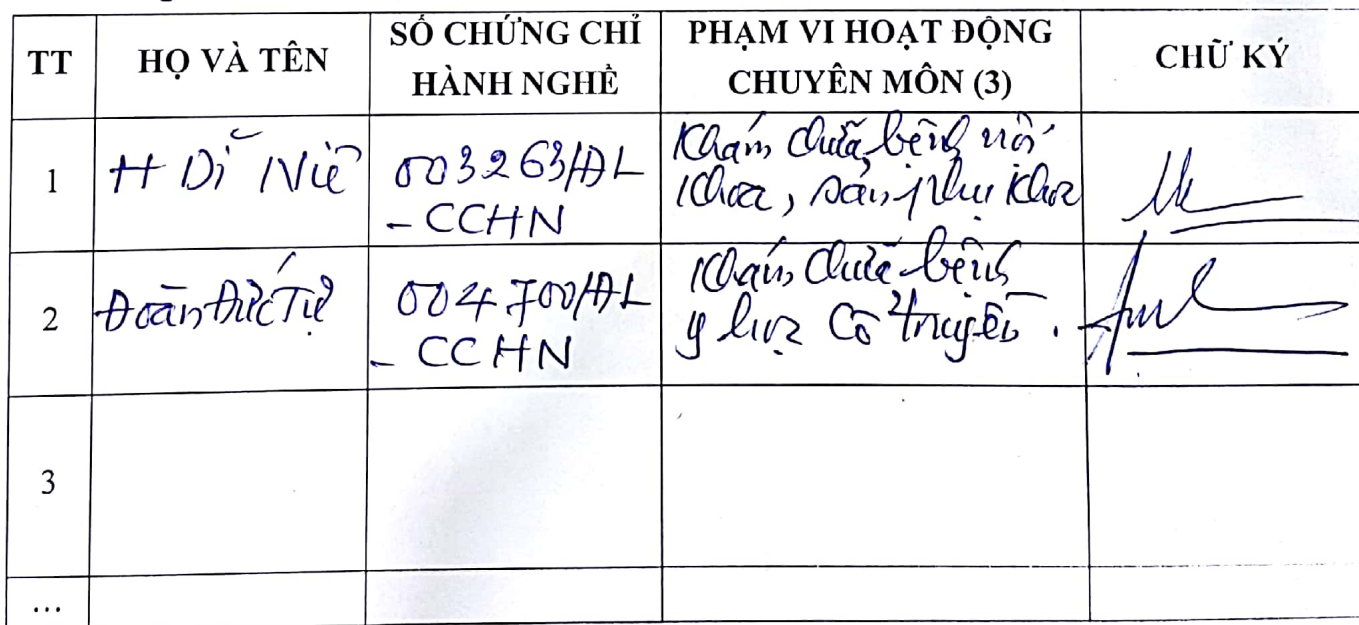 TT HỌ VÀ TÊN SỐ CHỨNG CHỈ HÀNH NGHỀ PHẠM VI HOẠT ĐỘNG CHUYÊN MÔN (3) CHỮ KÝ
1 H Dĩ Niê 003263/ĐL
- CCHN
Khám chữa bệnh nội
khoa, sản phụ khoa
2 Đoàn Đức Tự 004700/ĐL
- CCHN
Khám chữa bệnh
y học cổ truyền.
3
...